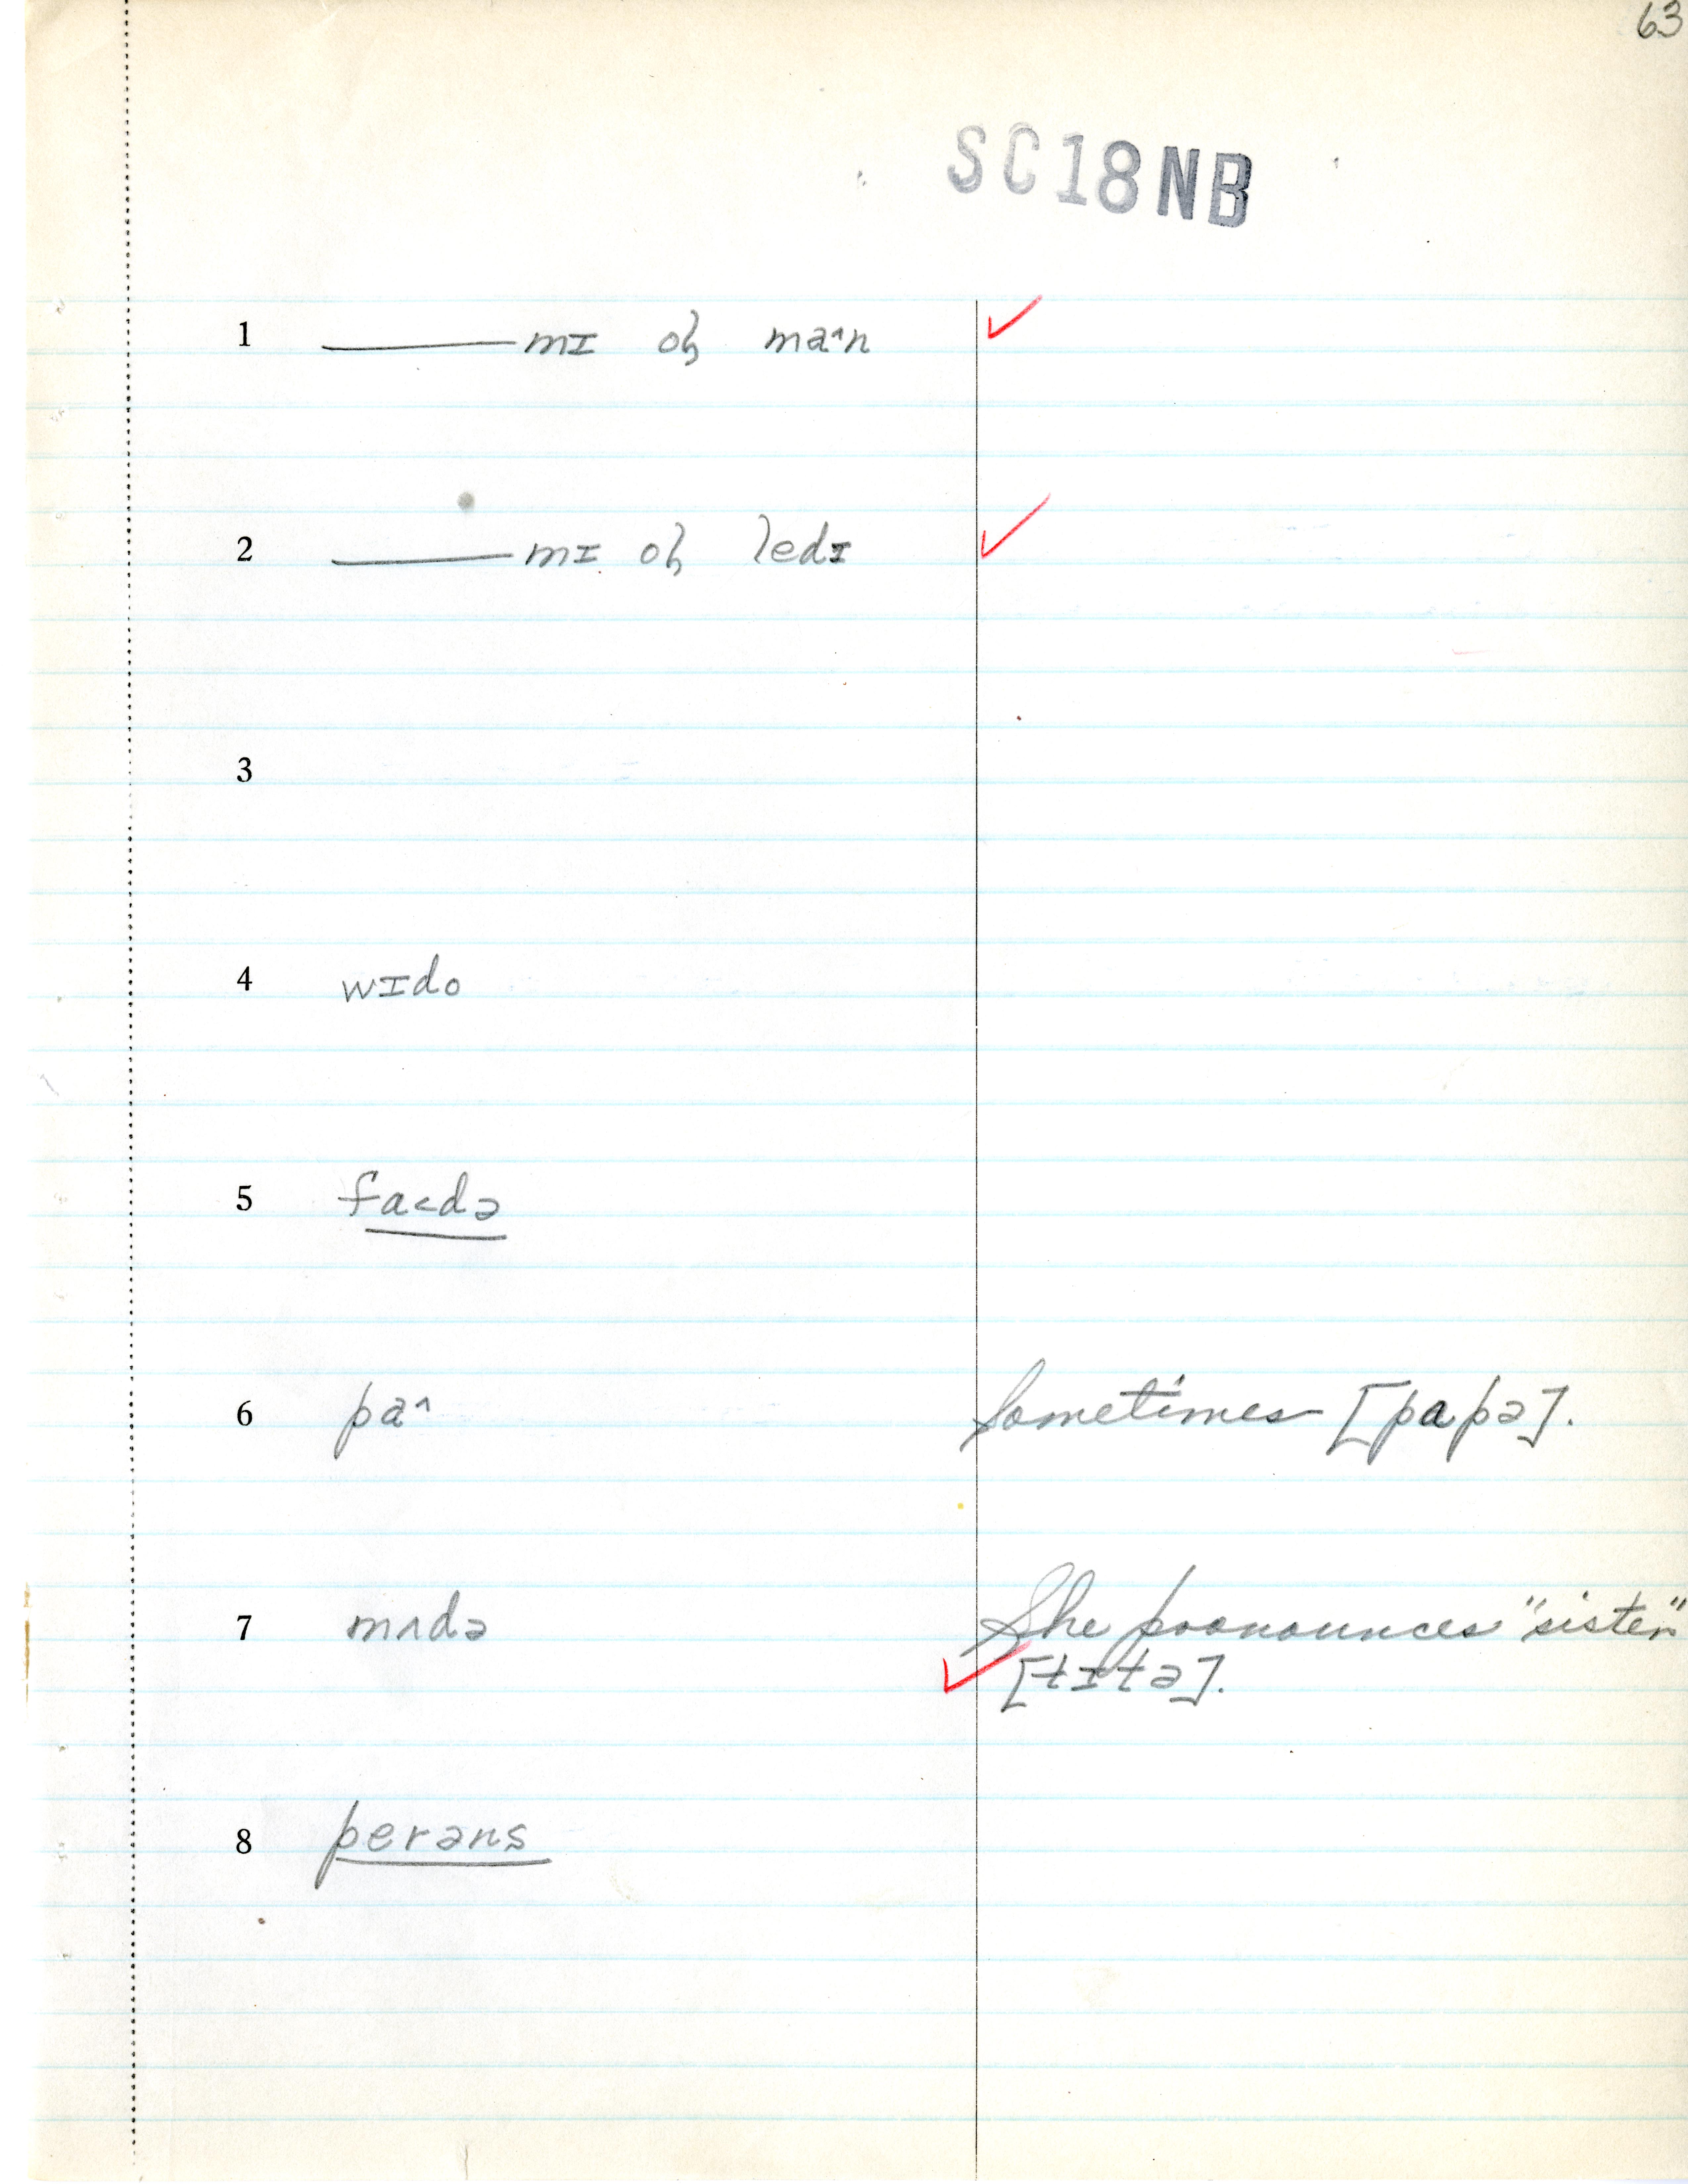 63
SC18NB
1 ——— mɪ oɫ ma^n
2 ——— mɪ oɫ ledɪ
3
4 wɪdo
5 fa<də
6 pa^ Sometimes [papə].
7 mʌdə She pronounces "sister"
[tɪtə].
8 perəns